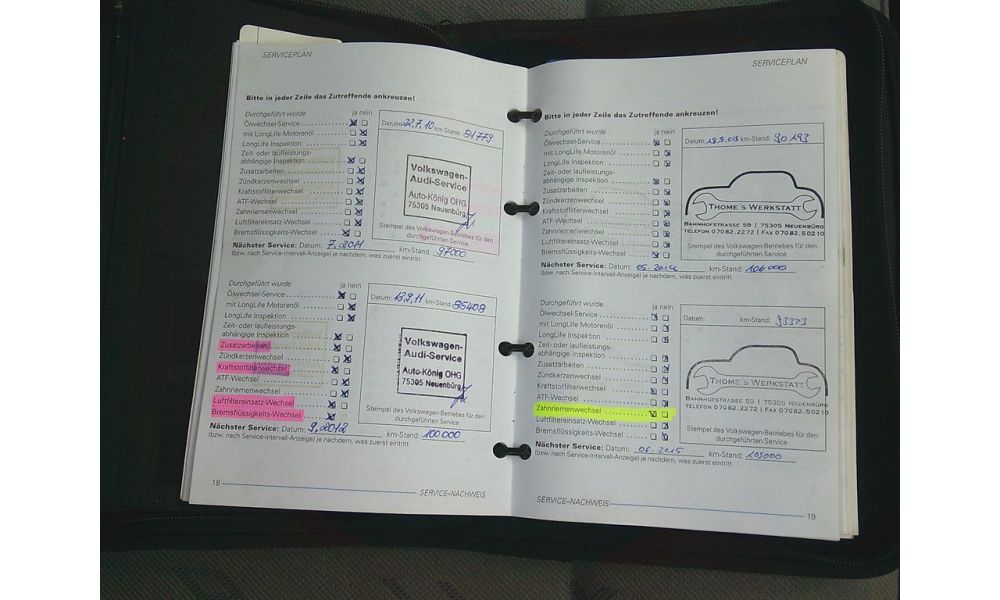 SERVICEPLAN
Bitte in jeder Zeile das Zutreffende ankreuzen!
Durchgeführt wurde ja nein
Ölwechsel-Service
mit LongLife Motorenöl
LongLife Inspektion
Zeit- oder laufleistungs-
abhängige Inspektion
Zusatzarbeiten
Zündkerzenwechsel
Kraftstoffilterwechsel
ATF-Wechsel
Zahnriemenwechsel
Luftfiltereinsatz-Wechsel
Bremsflüssigkeits-Wechsel
Nächster Service: Datum: 7.2011 km-Stand: 97000
(bzw. nach Service-Intervall-Anzeige) je nachdem, was zuerst eintritt
Datum: 22.7.10 km-Stand: 81779
Volkswagen-
Audi-Service
Auto-König OHG
75305 Neuenbürg
Stempel des Volkswagen-Betriebes für den
durchgeführten Service
Durchgeführt wurde ja nein
Ölwechsel-Service
mit LongLife Motorenöl
LongLife Inspektion
Zeit- oder laufleistungs-
abhängige Inspektion
Zusatzarbeiten
Zündkerzenwechsel
Kraftstoffilterwechsel
ATF-Wechsel
Zahnriemenwechsel
Luftfiltereinsatz-Wechsel
Bremsflüssigkeits-Wechsel
Nächster Service: Datum: 9.2012 km-Stand: 100000
(bzw. nach Service-Intervall-Anzeige) je nachdem, was zuerst eintritt
Datum: 13.9.11 km-Stand: 85408
Volkswagen-
Audi-Service
Auto-König OHG
75305 Neuenbürg
Stempel des Volkswagen-Betriebes für den
durchgeführten Service
18
SERVICE–NACHWEIS
SERVICEPLAN
Bitte in jeder Zeile das Zutreffende ankreuzen!
Durchgeführt wurde ja nein
Ölwechsel-Service
mit LongLife Motorenöl
LongLife Inspektion
Zeit- oder laufleistungs-
abhängige Inspektion
Zusatzarbeiten
Zündkerzenwechsel
Kraftstoffilterwechsel
ATF-Wechsel
Zahnriemenwechsel
Luftfiltereinsatz-Wechsel
Bremsflüssigkeits-Wechsel
Nächster Service: Datum: 05.2014 km-Stand: 106000
(bzw. nach Service-Intervall-Anzeige) je nachdem, was zuerst eintritt
Datum: km-Stand: 90193
THOME'S WERKSTATT
BAHNHOFSTRASSE 50 | 75305 NEUENBÜRG
TELEFON 07082.2272 | FAX 07082.50210
Stempel des Volkswagen-Betriebes für den
durchgeführten Service
Durchgeführt wurde ja nein
Ölwechsel-Service
mit LongLife Motorenöl
LongLife Inspektion
Zeit- oder laufleistungs-
abhängige Inspektion
Zusatzarbeiten
Zündkerzenwechsel
Kraftstoffilterwechsel
ATF-Wechsel
Zahnriemenwechsel
Luftfiltereinsatz-Wechsel
Bremsflüssigkeits-Wechsel
Nächster Service: Datum: 06.2015 km-Stand: 109000
(bzw. nach Service-Intervall-Anzeige) je nachdem, was zuerst eintritt
Datum: km-Stand: 93373
THOME'S WERKSTATT
BAHNHOFSTRASSE 50 | 75305 NEUENBÜRG
TELEFON 07082.2272 | FAX 07082.50210
Stempel des Volkswagen-Betriebes für den
durchgeführten Service
SERVICE–NACHWEIS
19